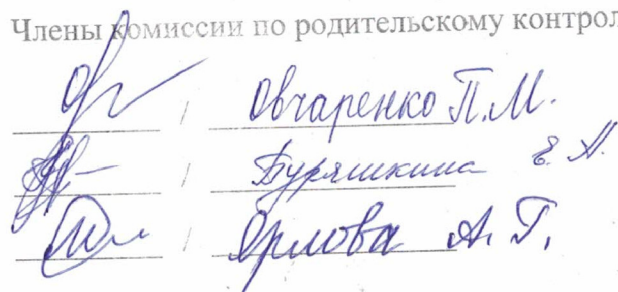 Члены комиссии по родительскому контрол
/ Овчаренко П.М.
/ Буряшкина Е.А.
/ Орлова А.Г.